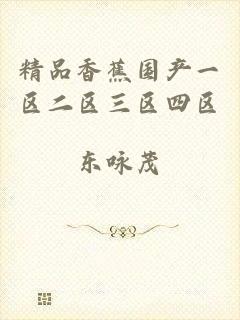 精品香蕉国产一
区二区三区四区
东咏茂